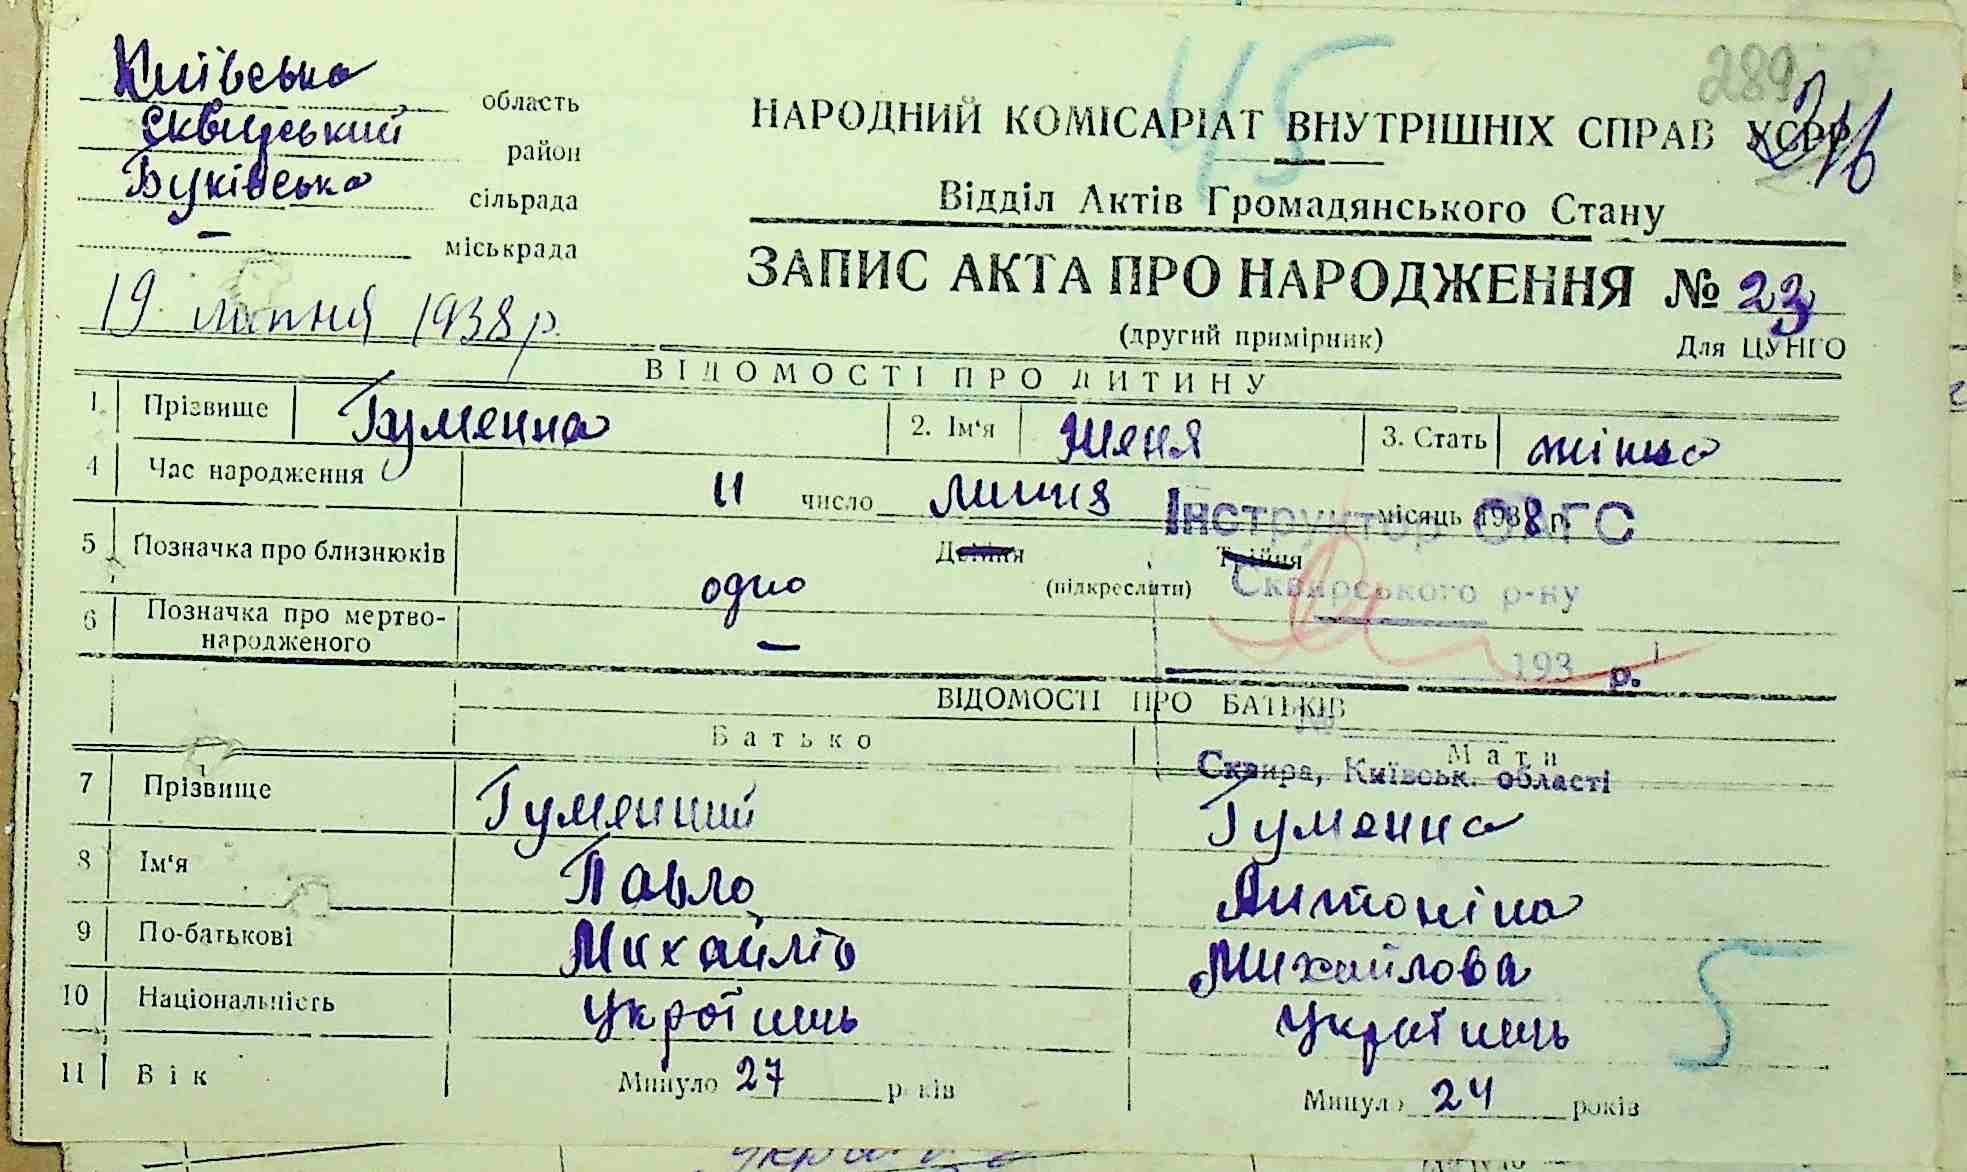 Київська область
Сквирський район
Буківська сільрада
— міськрада
289
45
НАРОДНИЙ КОМІСАРІАТ ВНУТРІШНІХ СПРАВ УСРР
Відділ Актів Громадянського Стану
ЗАПИС АКТА ПРО НАРОДЖЕННЯ № 23
(другий примірник) Для ЦУНГО
19 липня 1938 р.
ВІДОМОСТІ ПРО ДИТИНУ
1. Прізвище Гуменна 2. Ім‘я Женя 3. Стать жінка
4 Час народження 11 число липня місяць 1938 р.
Інструктор ОАГС
5 Позначка про близнюків одно Двійня Трійня
(підкреслити)
Сквирського р-ну
6 Позначка про мертво-
народженого —
193 р.
ВІДОМОСТІ ПРО БАТЬКІВ
№
Батько Мати
Сквира, Київськ. області
7 Прізвище Гуменний Гуменна
8 Ім‘я Павло Антоніна
9 По-батькові Михайлів Михайлова
10 Національність Українець Українець
5
11 Вік Минуло 27 років Минуло 24 років